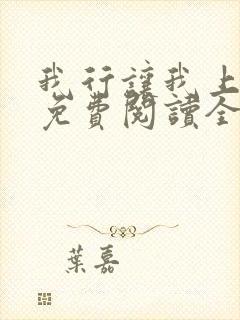 我行讓我上
免費閱讀全
葉嘉